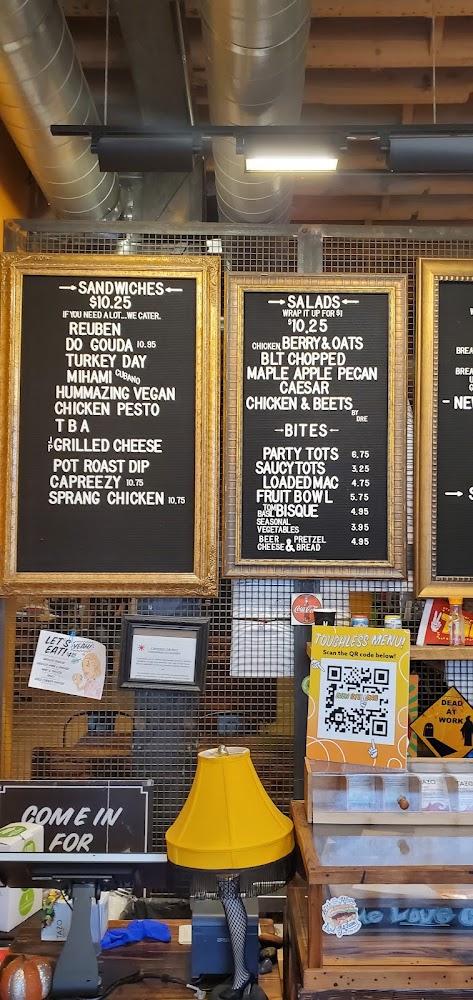 SANDWICHES
$10.25
IF YOU NEED A LOT...WE CATER.
REUBEN
DO GOUDA 10.95
TURKEY DAY
MIHAMI CUBANO
HUMMAZING VEGAN
CHICKEN PESTO
TBA
JP GRILLED CHEESE
POT ROAST DIP
CAPREEZY 10.75
SPRANG CHICKEN 10.75
SALADS
WRAP IT UP FOR $1
$10.25
CHICKEN BERRY & OATS
BLT CHOPPED
MAPLE APPLE PECAN
CAESAR
CHICKEN & BEETS
BY DRE
-BITES-
PARTY TOTS 6.75
SAUCY TOTS 3.25
LOADED MAC 4.75
FRUIT BOWL 5.75
TOM BASIL BISQUE 4.95
SEASONAL VEGETABLES 3.95
BEER CHEESE & PRETZEL BREAD 4.95
BREA
BREA
- NEW
LET'S EAT!
YEAH!
Coca-Cola
TOUCHLESS MENU!
Scan the QR code below!
DEAD
AT
WORK
COME IN
FOR
TAZO
TAZO
TAZO